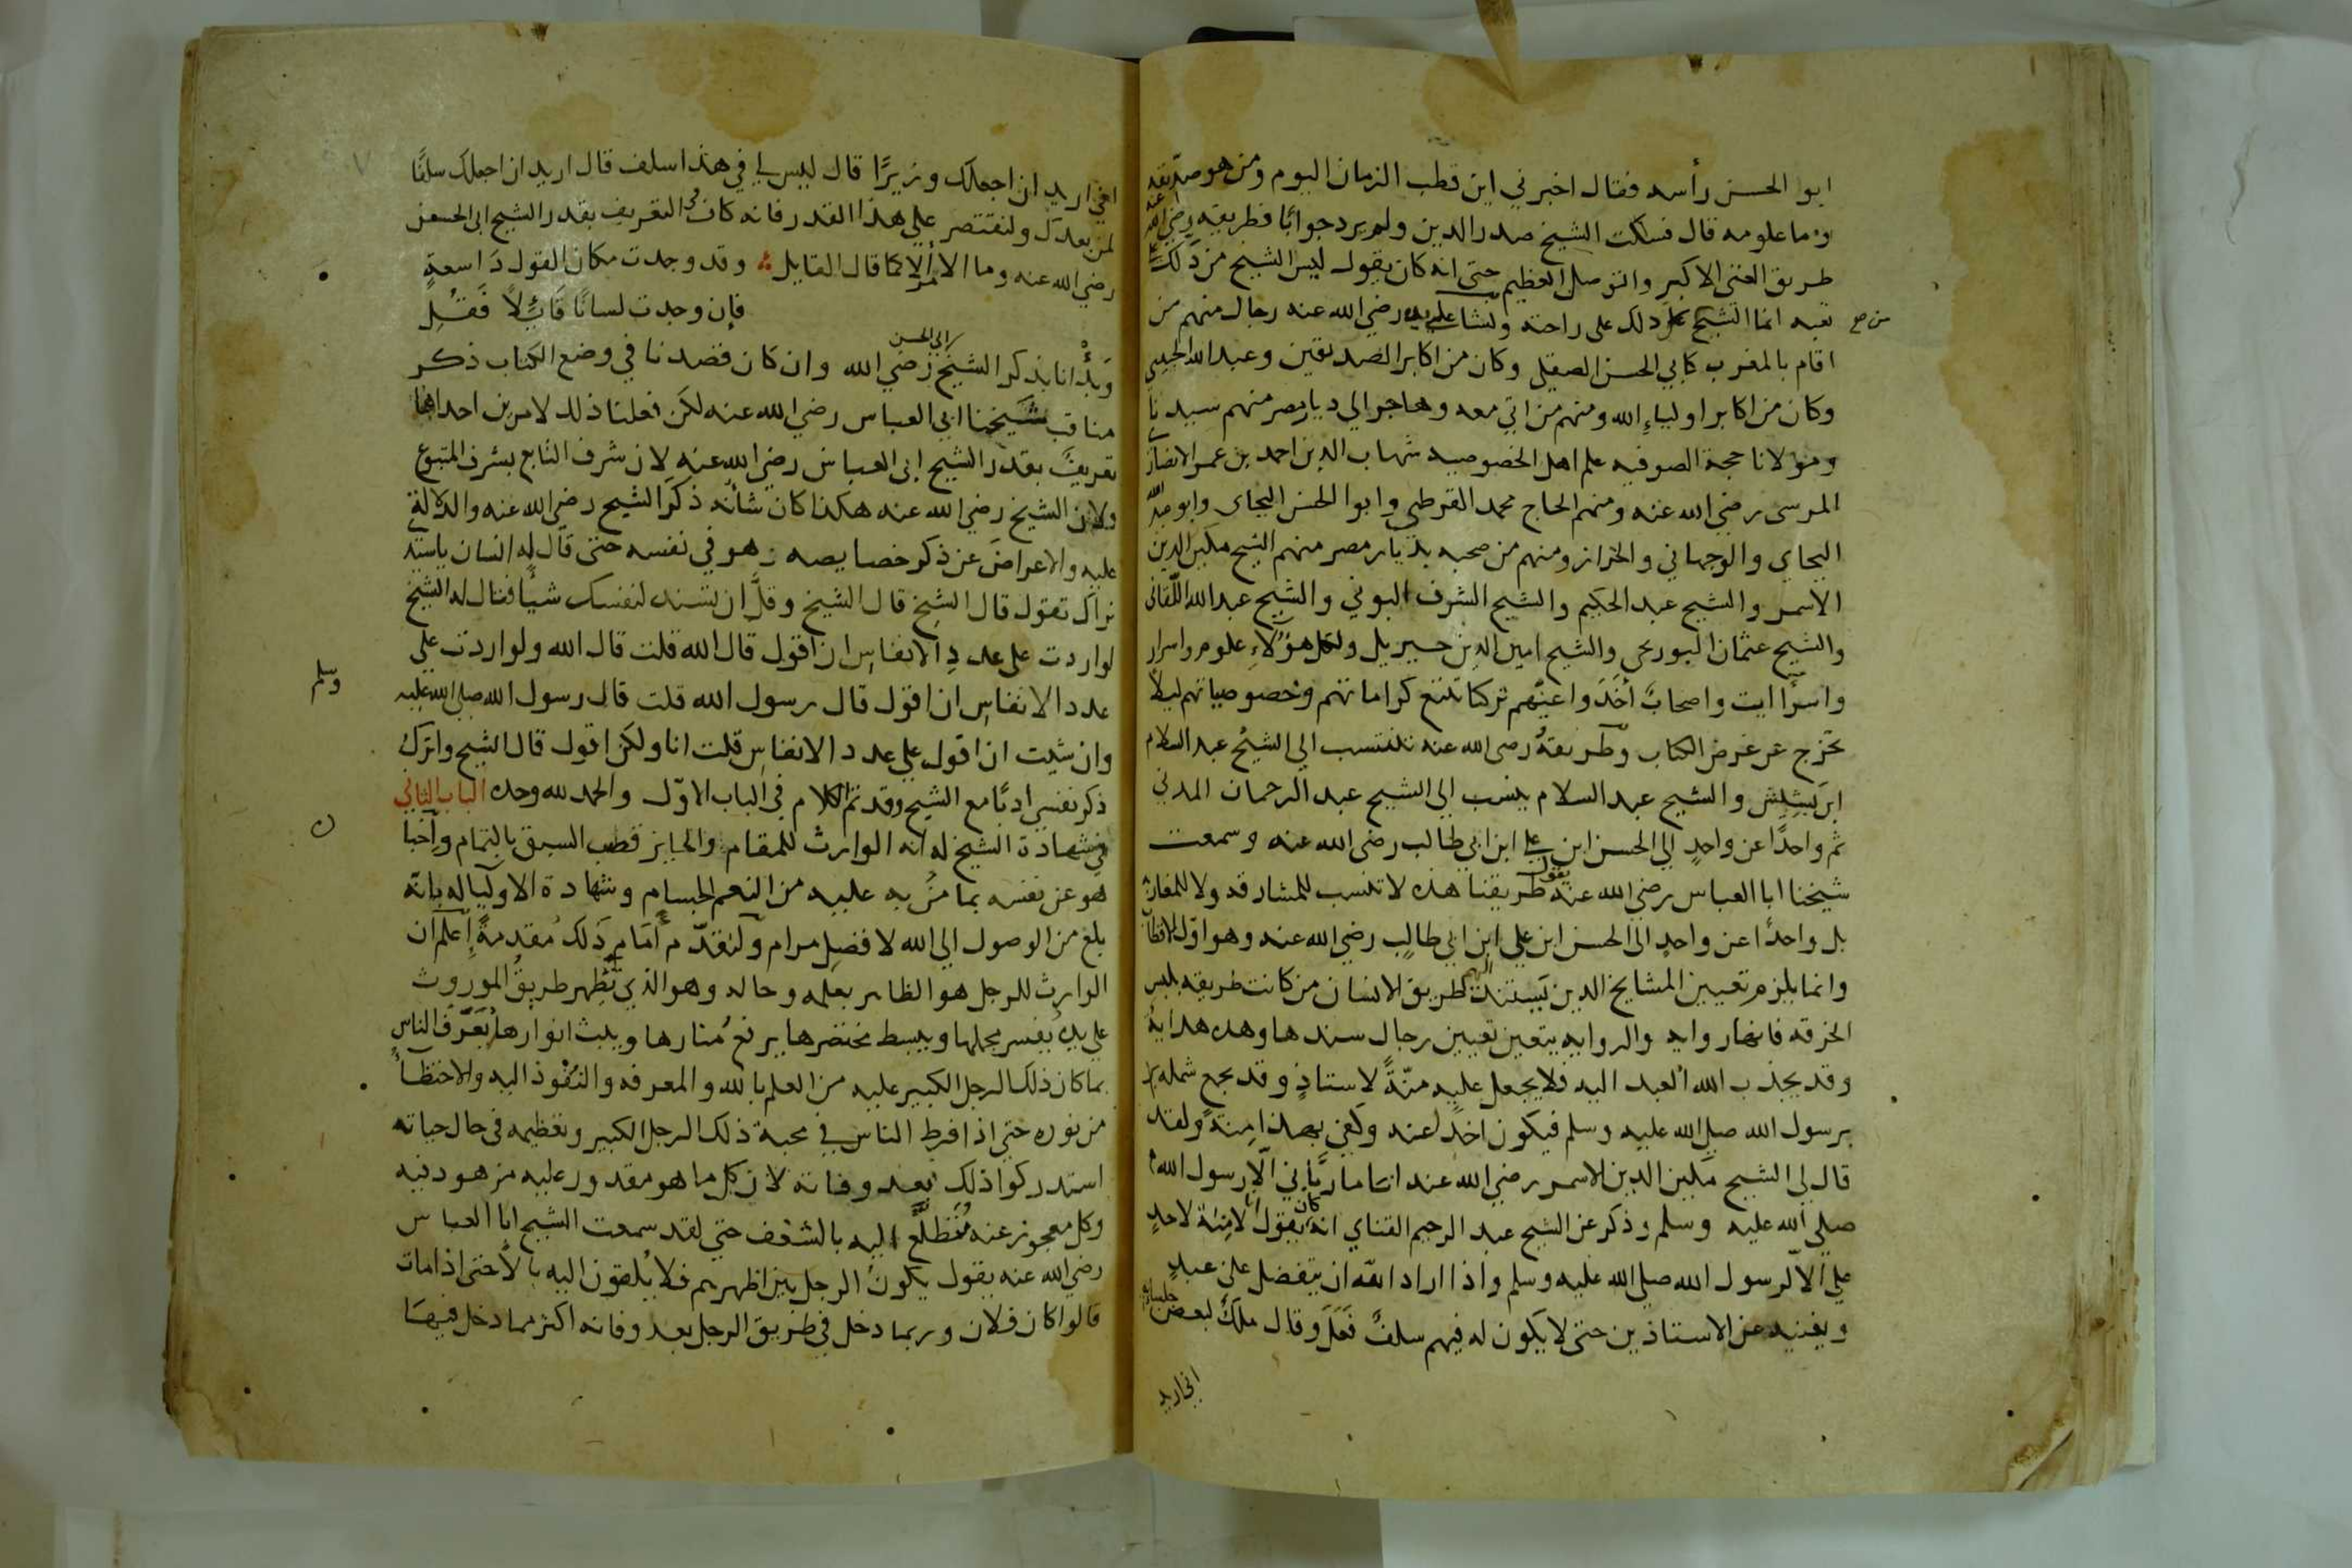 ابو الحسن رأسه فقال اخبرني اين قطب الزمان اليوم ومن هو صديقه
وما علومه قال فسكت الشيخ صدر الدين ولم يرد جوابًا فطريقه رضي الله عنه
طريق الغنى الاكبر والتوصل العظيم حتى انه كان يقول ليس الشيخ من دلك على
تعبه انما الشيخ من دلك على راحته ونشا على يديه رضي الله عنه رجال منهم من
اقام بالمغرب كابي الحسن الصقلي وكان من اكابر الصديقين وعبد الله الحبيبي
وكان من اكابر اولياءِ الله ومنهم من اتي معه وهاجر الي ديار مصر منهم سيدنا
ومولانا حجة الصوفيه علم اهل الخصوصيه شهاب الدين احمد بن عمر الانصاري
المرسى رضي الله عنه ومنهم الحاج محمد القرطبي وابوا الحسن البجاى وابو عبد الله
البجاي والوجهاني والخراز ومنهم من صحبه بديار مصر منهم الشيخ مكين الدين
الاسمر والشيخ عبد الحكيم والشيخ الشرف البوني والشيخ عبد الله اللقاني
والشيخ عثمان البوريحي والشيخ امين الدين جبريل ولكل هؤلاءِ علوم واسرار
واصحابٌ أخذوا عنهم تركنا تتبع كراماتهم وخصوصياتهم ليلا
نخرج عن غرض الكتاب وطريقهُ رضى الله عنه تنتسب الي الشيخ عبد السلام
ابن بَشِيش والشيخ عبد السلام ينسب الي الشيخ عبد الرحمان المدني
ثم واحدًا عن واحدٍ الي الحسن ابن علي ابن ابي طالب رضى الله عنه وسمعت
شيخنا ابا العباس رضي الله عنه يقول طريقنا هذه لا تنسب للمشارقه ولا للمغاربه
بل واحدًا عن واحدٍ الى الحسن ابن علي ابن ابي طالبٍ رضي الله عنه وهو اوّل الاقطاب
وانما يلزم تعيين المشايخ الدين يستند اليهم طريق الانسان من كانت طريقه بلبس
الخرقه فانها روايه والروايه يتعين تعيين رجال سندها وهذه هدايةُ
وقد يجذب الله العبد اليه فلا يجعل عليه منّةً لاستاذٍ وقد يجمع شمله
برسول الله صلي الله عليه وسلم فيكون اخذًا عنه وكفي بهذا منة ولقد
قال لي الشيخ مكين الدين الاسمر رضي الله عنه انا ما ربّاني الّا رسول الله
صلي الله عليه وسلم وذكر عن الشيخ عبد الرحيم القناي انه كان يقول انا لا منة لاحدٍ
علي الا لرسول الله صلي الله عليه وسلم واذا اراد الله ان يتفضل علي عبدٍ
ويغنيه عن الاستاذين حتى لا يكون له فيهم سلفٌ فَعَلَ وقال ملكٌ لبعض جلسائه
اني اريد
من صح
اني اريد ان اجعلك وزيرًا قال ليس لي في هذا سلف قال اريد ان اجعلك سلفًا
لمن بعدك ولنقتصر علي هذا القدر فانه كاف في التعريف بقدر الشيخ ابى الحسن
رضي الله عنه وما الامر الا كما قال القايل وقد وجدت مكان القول ذا سعةٍ
فإن وجدت لسانًا قَائِلاً فَقُلِ
وبدأنا بذكر الشيخ ابي الحسن رضي الله وان كان قصدنا في وضع الكتاب ذكر
مناقب شيخنا ابي العباس رضي الله عنه لكن فعلنا ذلك لامرين احداهما
تعريفٌ بقدر الشيخ ابي العباس رضي الله عنه لان شرف التابع بشرف المتبوع
ولان الشيخ رضي الله عنه هكذا كان شأنه ذكر الشيخ رضي الله عنه والدلالة
عليه والاعراض عن ذكر خصايصه هو في نفسه حتى قال له انسان ياسيد
نراك تقول قال الشيخ قال الشيخ وقلَّ ان تسند لنفسك شيأ فقال له الشيخ
لو اردت على عددِ الانفاسِ ان اقول قال الله قلت قال الله ولو اردت على
عدد الانفاسِ ان اقول قال رسول الله قلت قال رسول الله صلي الله عليه
وسلم
وان شيت ان اقول علي عدد الانفاسِ قلت انا ولكن اقول قال الشيخ واترك
ذكر نفسي ادبًا مع الشيخ وقد تم الكلام في الباب الاوّل والحمد لله وحده الباب الثاني
في شهادة الشيخ له انه الوارث للمقام والحايز قصب السبق بالتمام وأخبا
هو عن نفسه بما مُنَّ به عليه من النعم الجسام وشهادة الاوليا له بانه
بلغ من الوصول الي الله لافضل مرام ولنقدّم أمام ذلك مُقدمةً إعلم ان
الوارث للرجل هو الظاهر بعلمه وحاله وهو الذي تظهر طريقُ الموروث
علي يده يُفسر مجملها ويبسط مختصرها يرفع مُنارها ويبث انوارها يُعرّف الناس
بما كان ذلك الرجل الكبير عليه من العلم بالله والمعرفه والنفوذ اليه والاحتظاء
من نوره حتي اذا فرط الناس في محبة ذلك الرجل الكبير وتعظيمه في حال حياته
استدركوا ذلك بعد وفاته لان كل ما هو مقدور عليه مزهود فيه
وكل معجوز عنه مُتطلّع اليه بالشغف حتي لقد سمعت الشيخ ابا العباس
رضي الله عنه يقول يكون الرجل بين اظهرهم فلا يُلقون اليه بالاً حتى اذا مات
قالوا كان فلان وربما دخل في طريق الرجل بعد وفاته اكثر مما دخل فيها